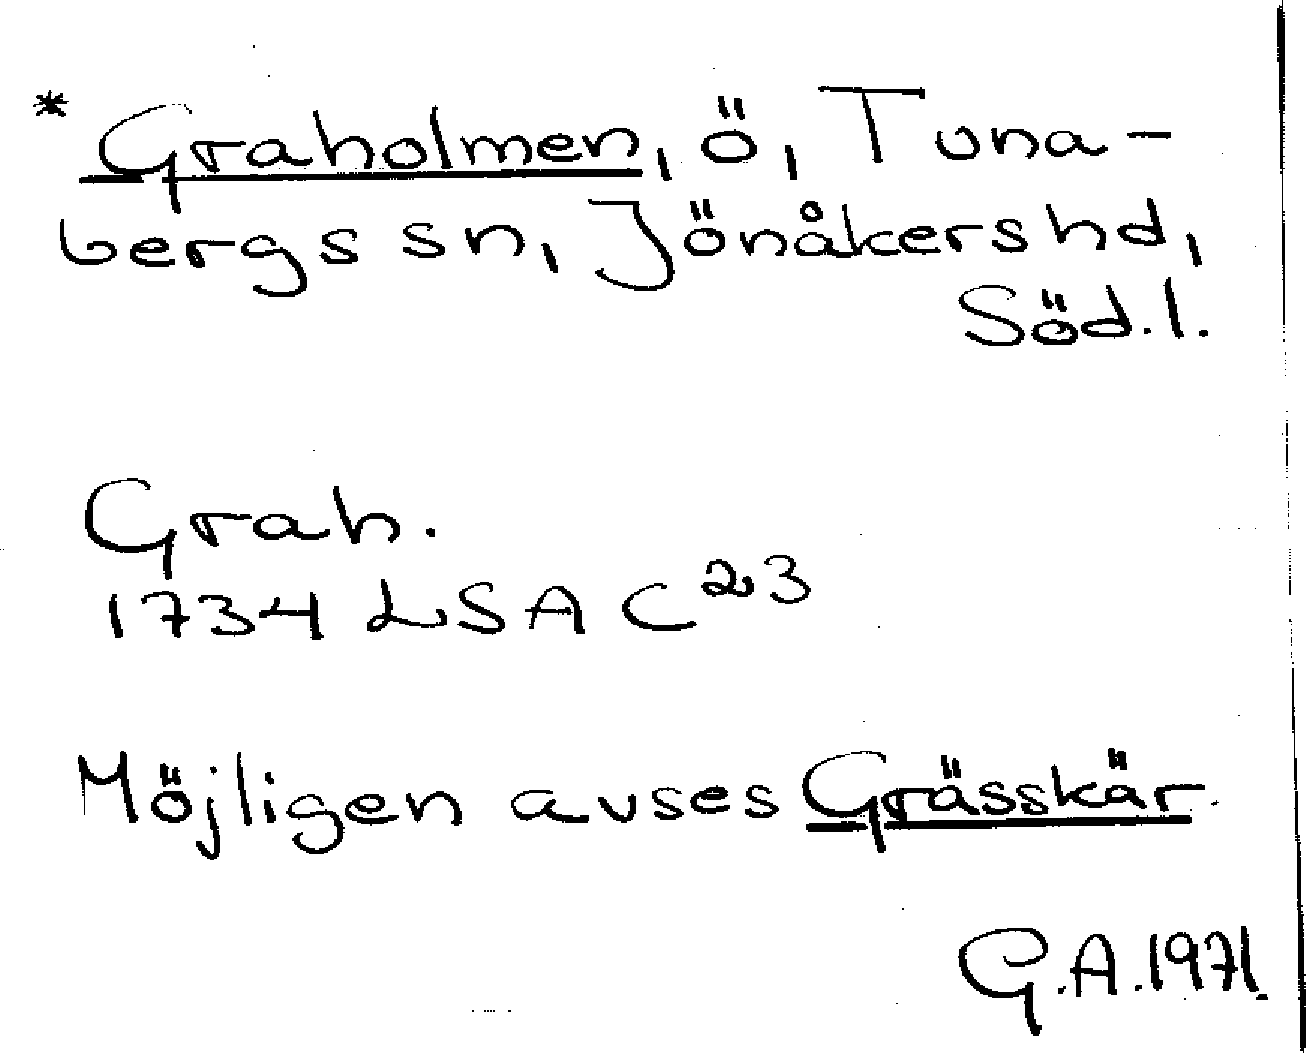 * Graholmen, ö, Tuna-
bergs sn, Jönåkers hd,
Söd.l.
Grah.
1734 LSA C²³
Möjligen avses Grässkär.
G.A.1971.